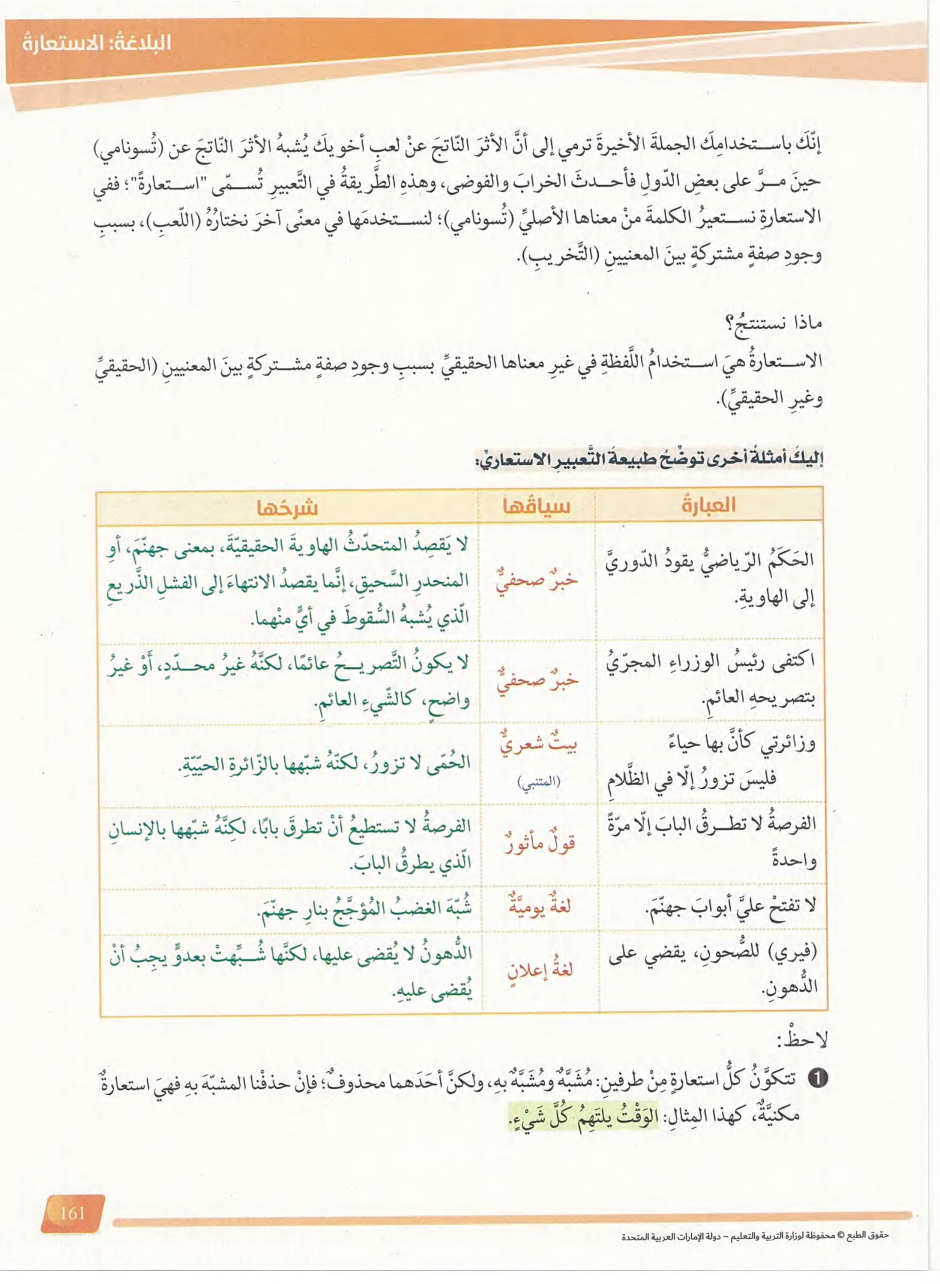 البلاغةُ: الاستعارةُ
إنّكَ باستخدامِكَ الجملةَ الأخيرةَ ترمي إلى أنَّ الأثرَ النّاتجَ عنْ لعبِ أخويكَ يُشبهُ الأثرَ النّاتجَ عن (تُسونامي)
حينَ مرَّ على بعضِ الدّولِ فأحدثَ الخرابَ والفوضى، وهذهِ الطّريقةُ في التَّعبيرِ تُسمّى "استعارةً"؛ ففي
الاستعارةِ نستعيرُ الكلمةَ منْ معناها الأصليِّ (تُسونامي)؛ لنستخدمَها في معنًى آخرَ نختارُهُ (اللّعبِ)، بسببِ
وجودِ صفةٍ مشتركةٍ بينَ المعنيينِ (التَّخريبِ).
ماذا نستنتجُ؟
الاستعارةُ هيَ استخدامُ اللَّفظةِ في غيرِ معناها الحقيقيِّ بسببِ وجودِ صفةٍ مشتركةٍ بينَ المعنيينِ (الحقيقيِّ
وغيرِ الحقيقيِّ).
إليكَ أمثلةً أخرى توضّحُ طبيعةَ التَّعبيرِ الاستعاريِّ:
العبارةُ سياقُها شرحُها
الحَكَمُ الرّياضيُّ يقودُ الدّوريَّ
إلى الهاويةِ.
خبرٌ صحفيٌّ
لا يَقصِدُ المتحدّثُ الهاويةَ الحقيقيّةَ، بمعنى جهنّمَ، أوِ
المنحدرِ السَّحيقِ، إنَّما يقصدُ الانتهاءَ إلى الفشلِ الذَّريعِ
الّذي يُشبهُ السُّقوطَ في أيٍّ منْهما.
اكتفى رئيسُ الوزراءِ المجرّيُّ
بتصريحهِ العائمِ.
خبرٌ صحفيٌّ
لا يكونُ التَّصريحُ عائمًا، لكنَّهُ غيرُ محدّدٍ، أَوْ غيرُ
واضحٍ، كالشّيءِ العائمِ.
وزائرتي كأنَّ بها حياءً
فليسَ تزورُ إلّا في الظَّلامِ
بيتٌ شعريٌّ
(المتنبي)
الحُمّى لا تزورُ، لكنّهُ شبّهها بالزّائرةِ الحيّيّةِ.
الفرصةُ لا تطرقُ البابَ إلّا مرّةً
واحدةً
قولٌ مأثورٌ
الفرصةُ لا تستطيعُ أنْ تطرقَ بابًا، لكنَّهُ شبّهها بالإنسانِ
الّذي يطرقُ البابَ.
لا تفتحْ عليَّ أبوابَ جهنّمَ.
لغةٌ يوميَّةٌ
شُبّهَ الغضبُ المُؤجَّجُ بنارِ جهنّمَ.
(فيري) للصُّحونِ، يقضي على
الدُّهونِ.
لغةُ إعلانٍ
الدُّهونُ لا يُقضى عليها، لكنَّها شُبِّهتْ بعدوٍّ يجبُ أنْ
يُقضى عليهِ.
لاحظْ:
1 تتكوَّنُ كلُّ استعارةٍ مِنْ طرفينِ: مُشبَّهٌ ومُشبَّهٌ بهِ، ولكنَّ أحَدَهما محذوفٌ؛ فإنْ حذفْنا المشبّهَ بهِ فهيَ استعارةٌ
مكنيَّةٌ، كهذا المِثالِ: الوَقْتُ يلتَهِمُ كُلَّ شَيْءٍ.
161
حقوق الطبع © محفوظة لوزارة التربية والتعليم – دولة الإمارات العربية المتحدة